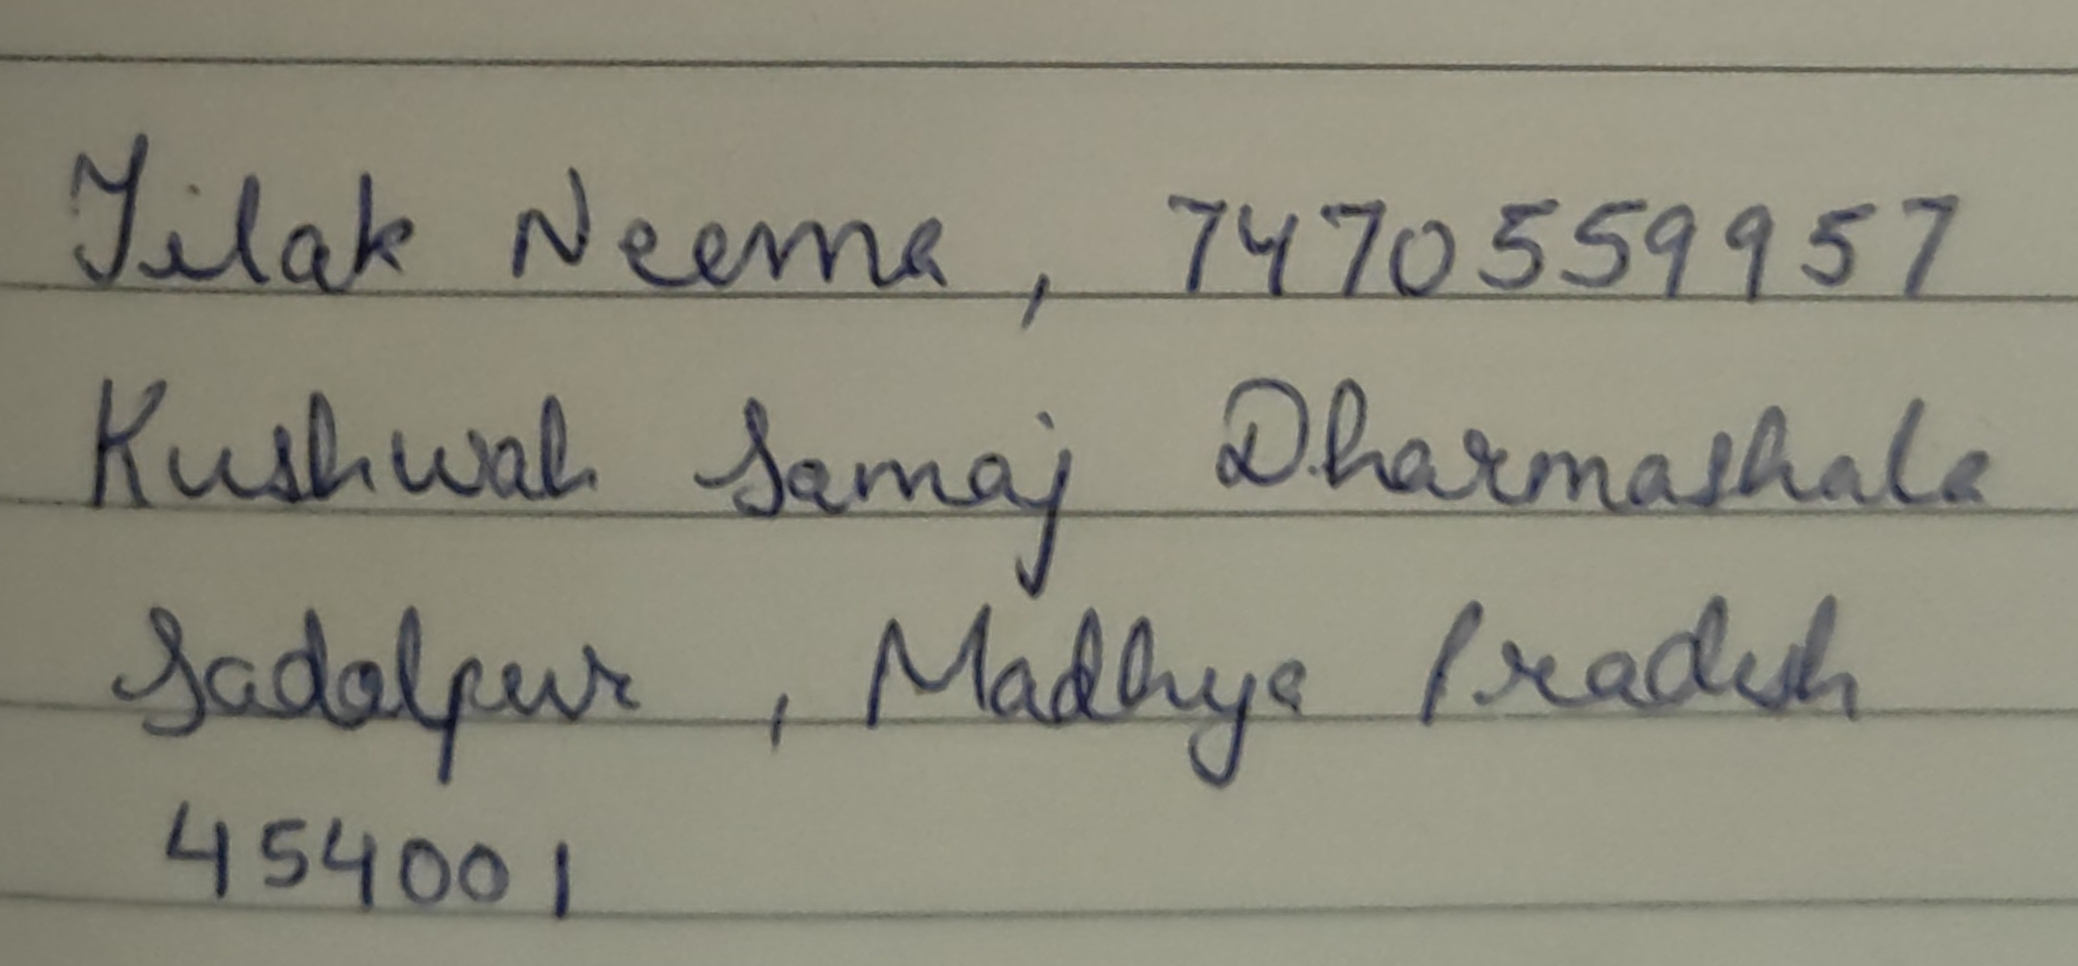 Tilak Neema, 7470559957
Kushwah Samaj Dharmashala
Sadalpur, Madhya Pradesh
454001